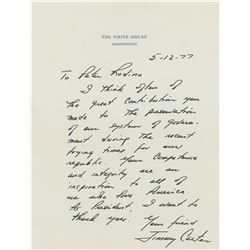 THE WHITE HOUSE
WASHINGTON
5-12-77
To Peter Rodino
I think often of
the great contribution you
made to the preservation
of our system of govern-
ment during the recent
trying times for our
republic. Your competence
and integrity are an
inspiration to all of
us who love America.
As President, I want to
thank you.
Your friend
Jimmy Carter